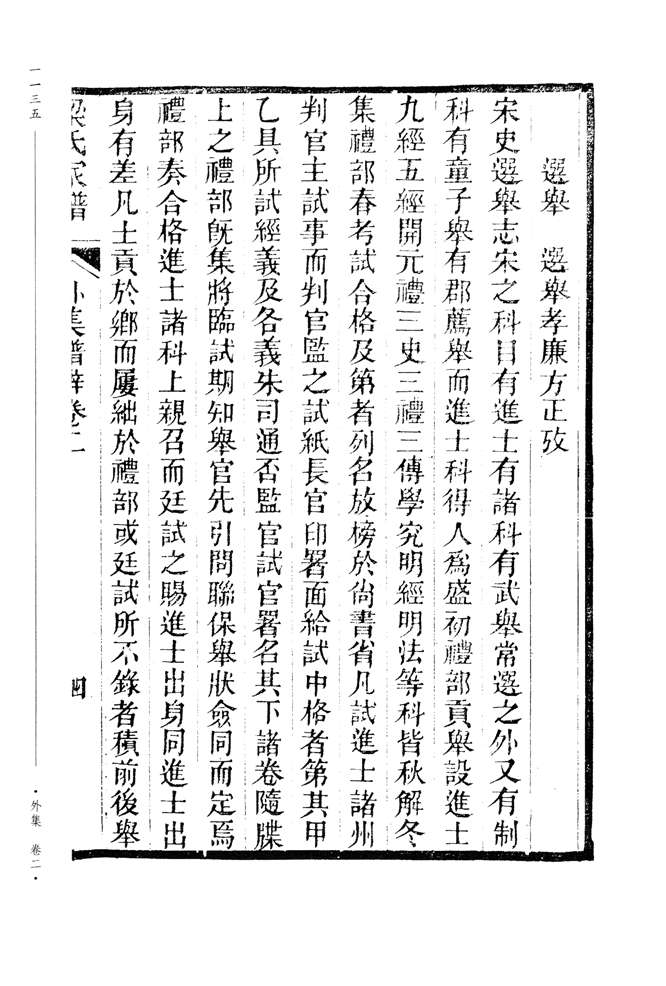 選舉　選舉孝廉方正攷
宋史選舉志宋之科目有進士有諸科有武舉常選之外又有制
科有童子舉有郡薦舉而進士科得人爲盛初禮部貢舉設進士
九經五經開元禮三史三禮三傳學究明經明法等科皆秋解冬
集禮部春考試合格及第者列名放榜於尙書省凡試進士諸州
判官主試事而判官監之試紙長官印署面給試中格者第其甲
乙具所試經義及各義朱司通否監官試官署名其下諸卷隨牒
上之禮部旣集將臨試期知舉官先引問聯保舉狀僉同而定焉
禮部奏合格進士諸科上親召而廷試之賜進士出身同進士出
身有差凡士貢於鄉而屢絀於禮部或廷試所不錄者積前後舉
梁氏家譜　外集譜辨卷二　四
一一三五
·外集　卷二·